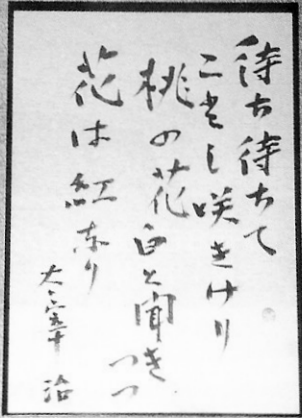 待ち待ちて
ことし咲きけり
桃の花白と聞きつつ
花は紅なり
太宰治